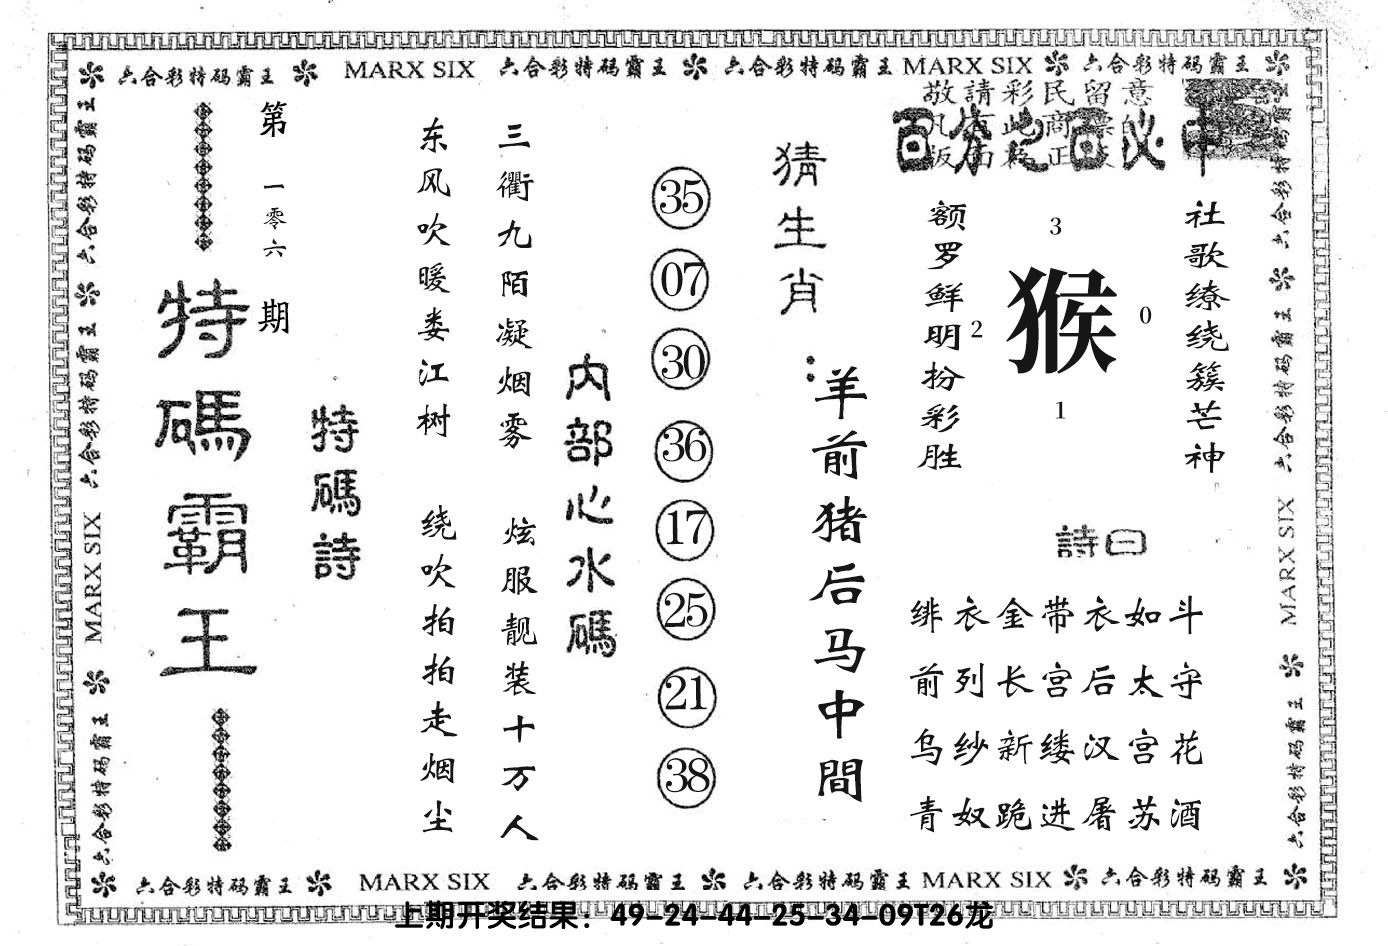 六合彩特码霸王 MARX SIX 六合彩特码霸王 六合彩特码霸王 MARX SIX 六合彩特码霸王
敬請彩民留意
百分之百必中
社歌缭绕簇芒神
3
猴
2
0
1
额罗鲜明扮彩胜
詩曰
绯衣金带衣如斗
前列长宫后太守
乌纱新缕汉宫花
青奴跪进屠苏酒
猜生肖：
羊前猪后马中間
35
07
30
36
17
25
21
38
内部心水碼
三衢九陌凝烟雾 炫服靓装十万人
东风吹暖娄江树 绕吹拍拍走烟尘
特碼詩
第一零六期
特碼霸王
六合彩特码霸王 六合彩特码霸王 MARX SIX 六合彩特码霸王
六合彩特码霸王 六合彩特码霸王 MARX SIX 六合彩特码霸王
六合彩特码霸王 MARX SIX 六合彩特码霸王 六合彩特码霸王 MARX SIX 六合彩特码霸王
上期开奖结果：49-24-44-25-34-09T26龙